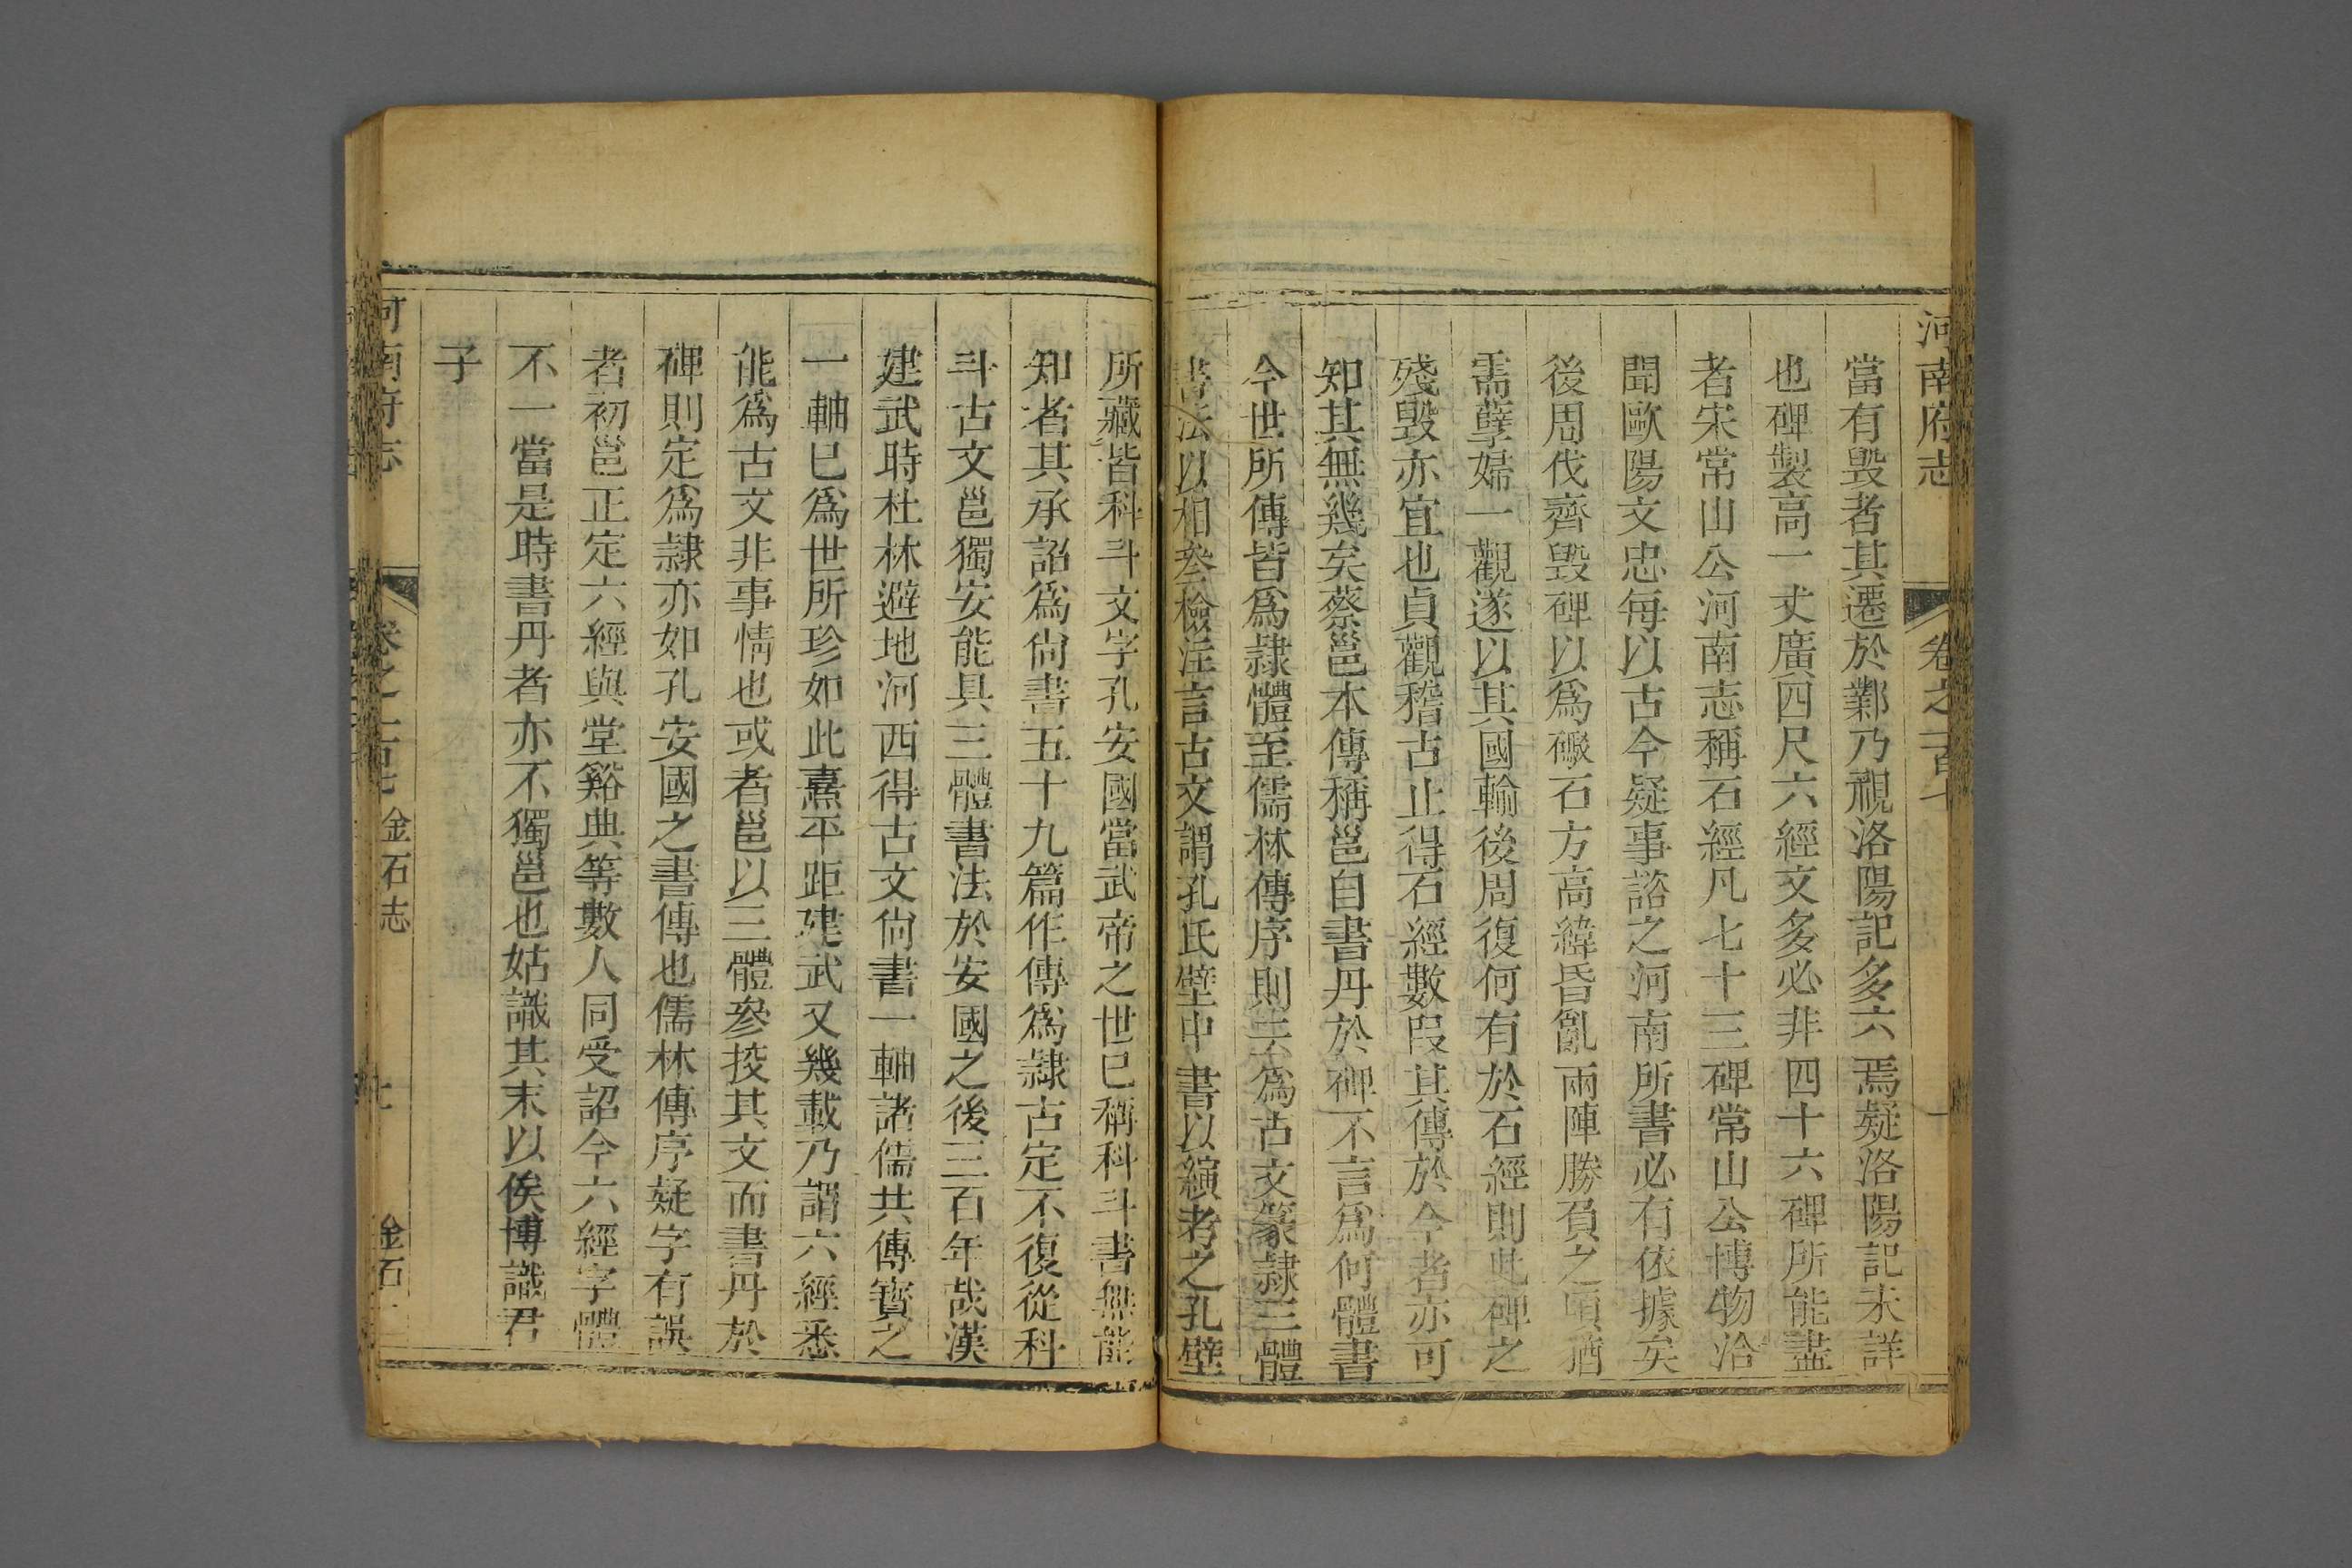 河南府志
卷之一百七
當有毀者其遷於鄴乃視洛陽記多六焉疑洛陽記未詳
也碑製高一丈廣四尺六經文多必非四十六碑所能盡
者宋常山公河南志稱石經凡七十三碑常山公博物洽
聞歐陽文忠每以古今疑事諮之河南所書必有依據矣
後周伐齊毀碑以爲礮石方高緯昏亂兩陣勝負之頃猶
需孽婦一觀遂以其國輸後周復何有於石經則此碑之
殘毀亦宜也貞觀稽古止得石經數段其傳於今者亦可
知其無幾矣蔡邕本傳稱邕自書丹於碑不言爲何體書
今世所傳皆爲隷體至儒林傳序則云爲古文篆隷三體
書法以相叅檢注言古文謂孔氏壁中書以縯考之孔壁
所藏皆科斗文字孔安國當武帝之世已稱科斗書無能
知者其承詔爲尙書五十九篇作傳爲隷古定不復從科
斗古文邕獨安能具三體書法於安國之後三百年哉漢
建武時杜林避地河西得古文尙書一軸諸儒共傳寶之
一軸已爲世所珍如此熹平距建武又幾載乃謂六經悉
能爲古文非事情也或者邕以三體參挍其文而書丹於
碑則定爲隷亦如孔安國之書傳也儒林傳序疑字有誤
者初邕正定六經與堂谿典等數人同受詔今六經字體
不一當是時書丹者亦不獨邕也姑識其末以俟博識君
子
河南府志
卷之一百七
金石志
七
金石